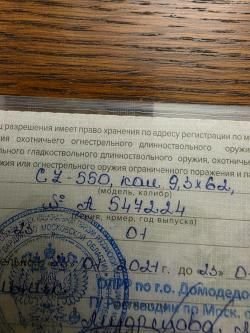 разрешения имеет право хранения по адресу регистрации по м
ия охотничьего огнестрельного длинноствольного оружия
льного гладкоствольного длинноствольного оружия, охотничьег
жия или огнестрельного оружия ограниченного поражения и па
CZ-550, кал 9,3х62,
(модель, калибр)
№ А 547224
номер, год выпуска)
01
01 2021 г. до 23 0
ОЛРР по г.о. Домодедо
Росгвардии по Моск.